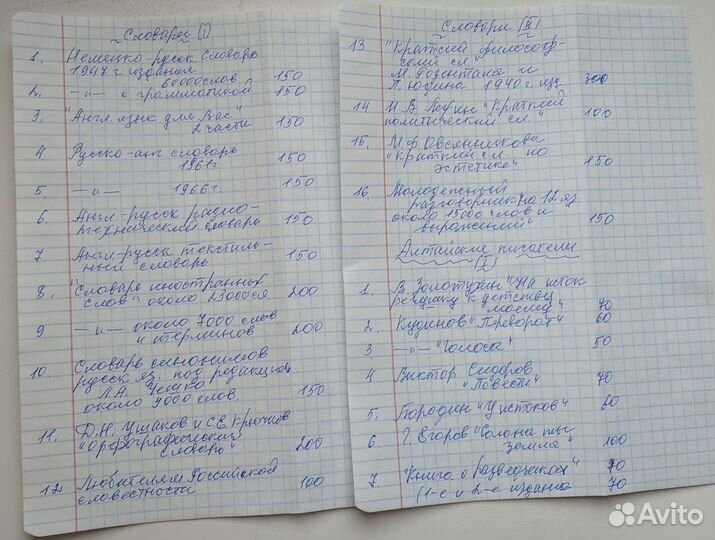 Словари (I)
1. Немецко-русск словарь
1947 г издания
60000 слов 150
2. —и— с грамматикой 150
3. "Англ. язык для Вас"
2 части 150
4. Русско-анг словарь
1961 г. 150
5. —и— 1966 г. 150
6. Англ.-русск радио-
технический словарь 150
7. Англ-русск текстиль-
ный словарь 150
8. "Словарь иностранных
слов" около 23000 сл 200
9. —и— около 7000 слов
и терминов 200
10. Словарь синонимов
русск яз. под редакцией
Л.А. Чешко
около 9000 слов. 150
11. Д.Н. Ушаков и С.Е. Крючков
"Орфографический
словарь" 200
12 Любителям Российской
словестности 100
Словари (II)
13. "Краткий философ-
ский сл."
М. Розентала и
П. Юдина 1940 г. изд. 300
14 Н.В. "Краткий
политический сл." 100
15. М.Ф. Овсянникова
"Краткий сл. по
эстетике" 150
16. Молодежный
разговорник на 12 яз
около 15000 слов и
выражений" 150
Алтайские писатели
(I)
1. В. Золотухин "На исток
речушку к детству
моему" 70
2. Кудинов "Переворот" 60
3 —и— "Голоса" 50
4 Виктор Сидоров
"Повести" 70
5. Бородкин "У истоков" 60
6 Г. Егоров "Солона ты
земля" 100
7. "Книга о разведчиках" 70
(1-е и 2-е издания 70
Avito